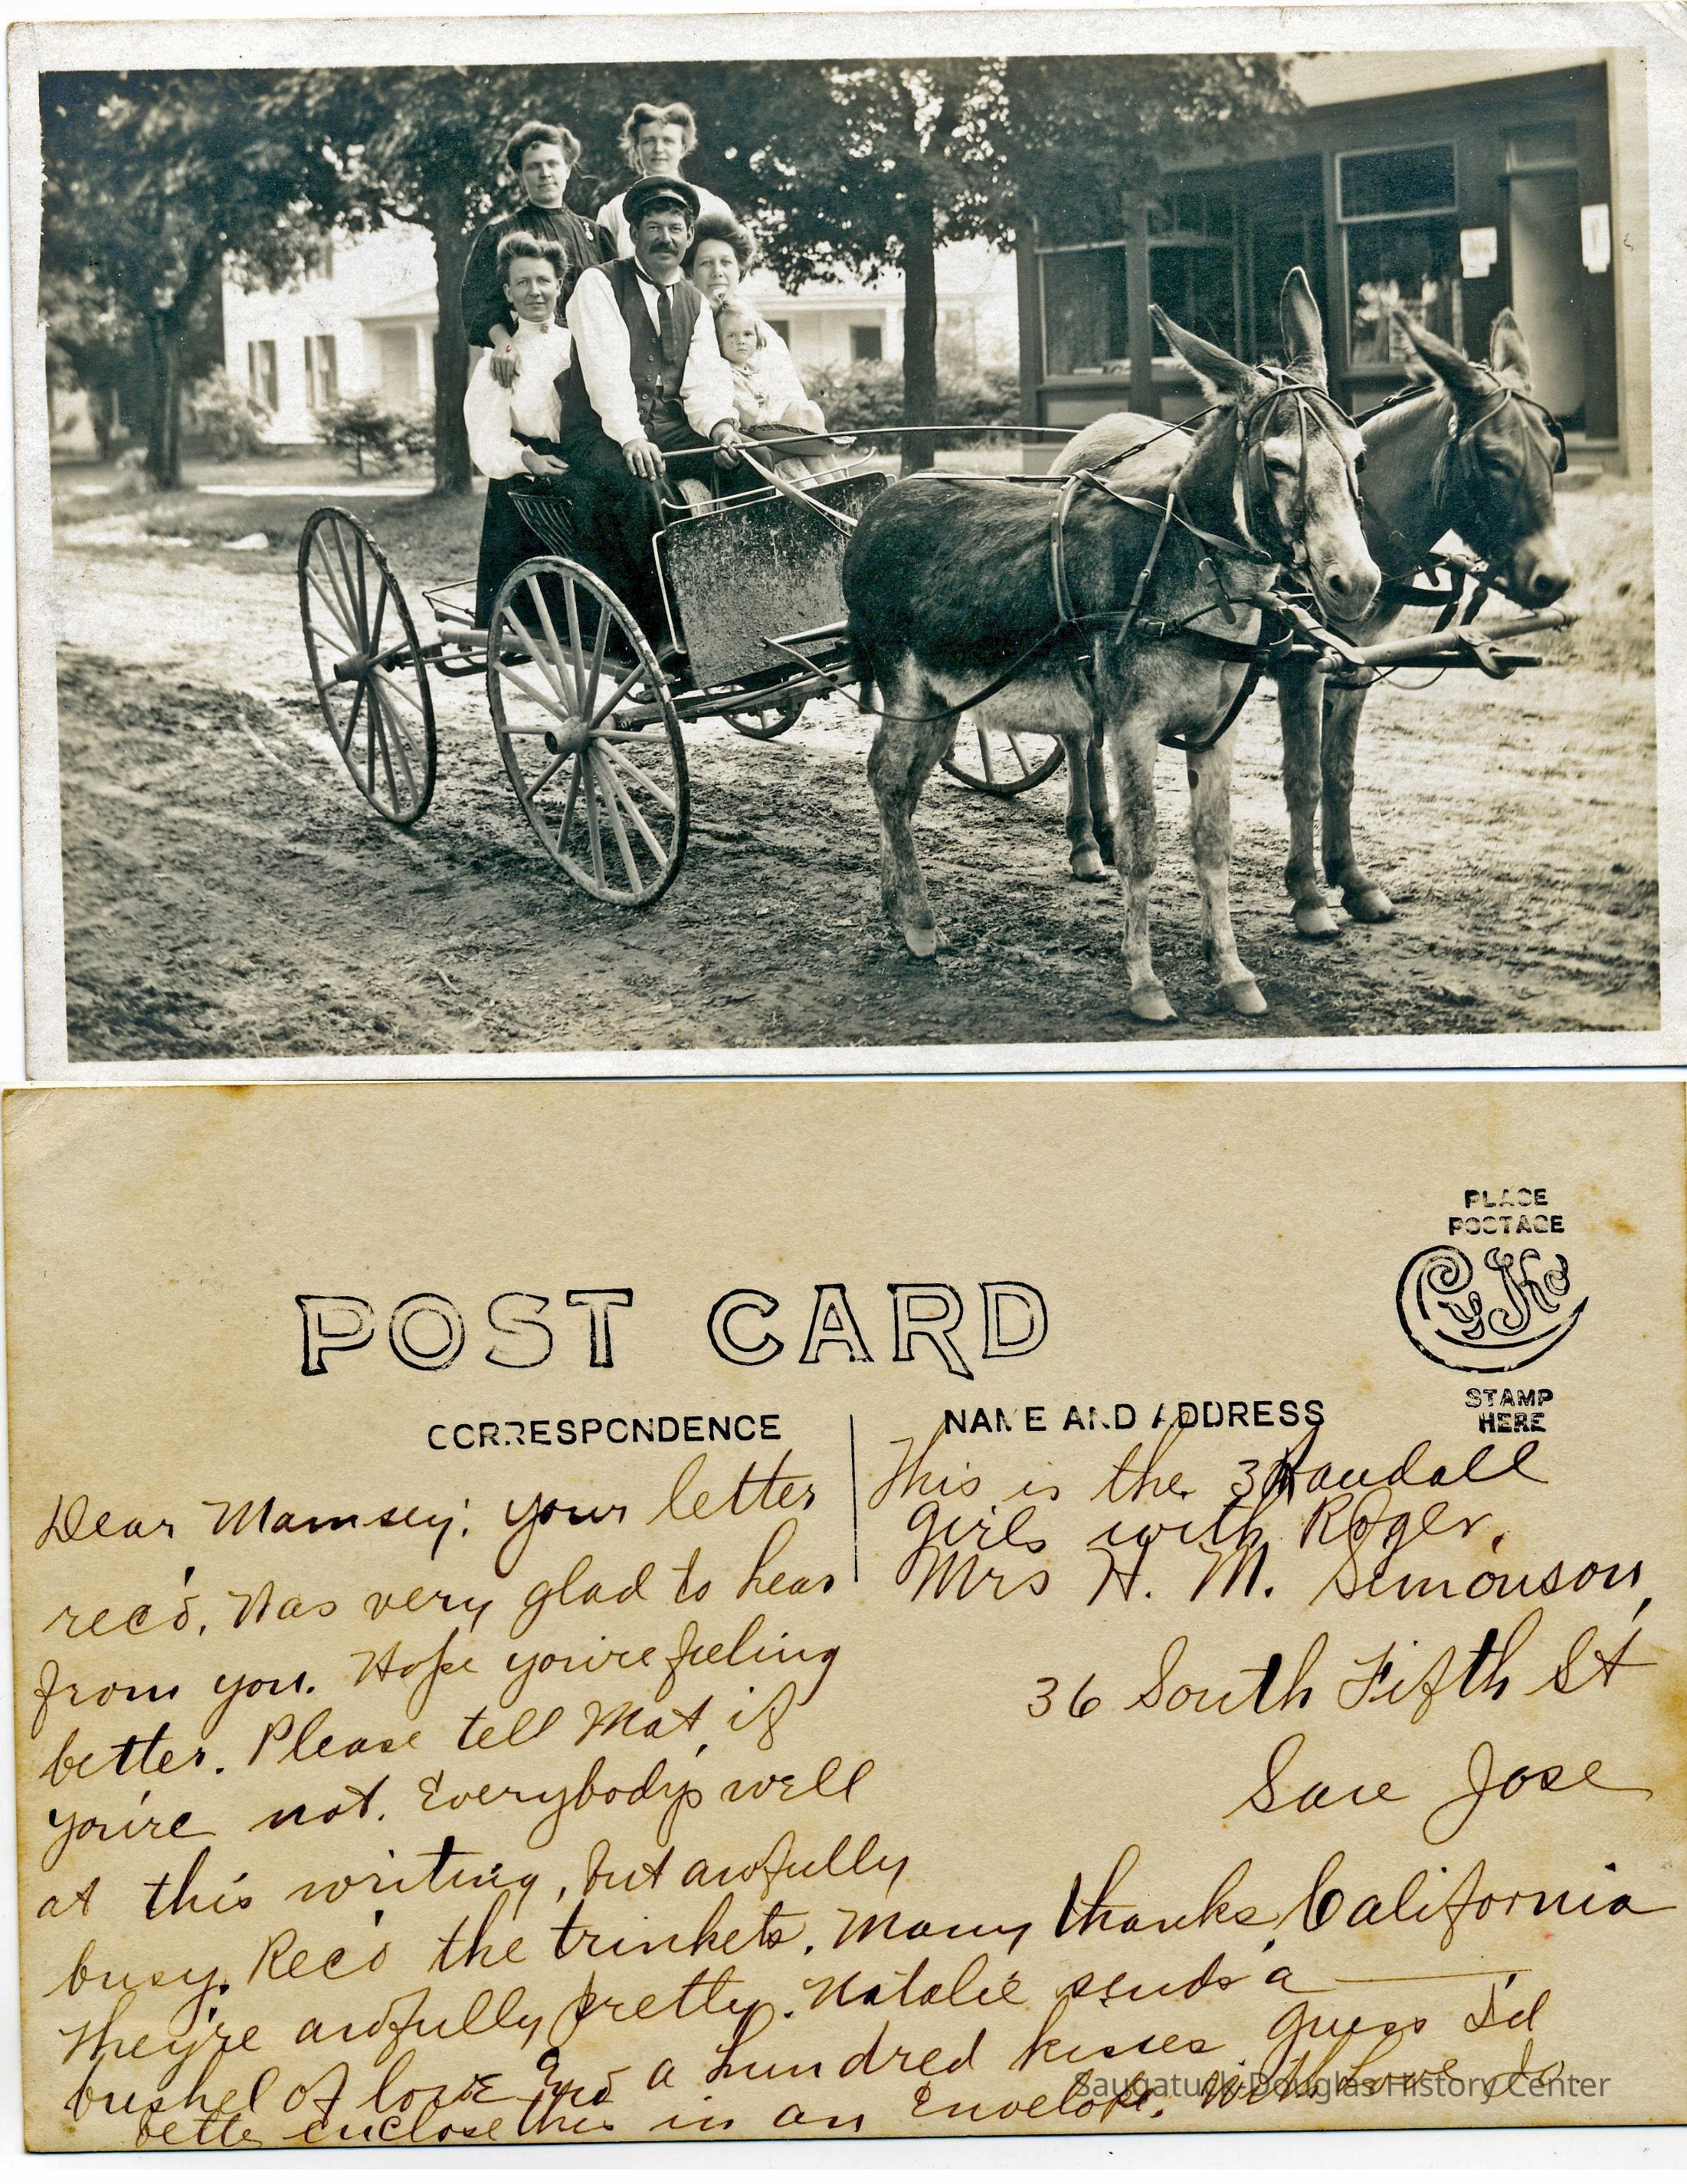 PLACE
POSTAGE
CYKO
STAMP
HERE
POST CARD
CORRESPONDENCE
NAME AND ADDRESS
Dear Mamsey; your letter
rec'd. Was very glad to hear
from you. Hope you're feeling
better. Please tell Mat, if
you're not. Everybody's well
at this writing, but awfully
busy. Rec'd the trinkets. Many thanks,
They're awfully pretty. Natalie sends a
bushel of love and a hundred kisses. Guess I'd
bette enclose this in an Envelope. With Love
This is the 3 Randall
girls with Roger.
Mrs H. M. Simonson,
36 South Fifth St
San Jose
California
Saugatuck-Douglas History Center